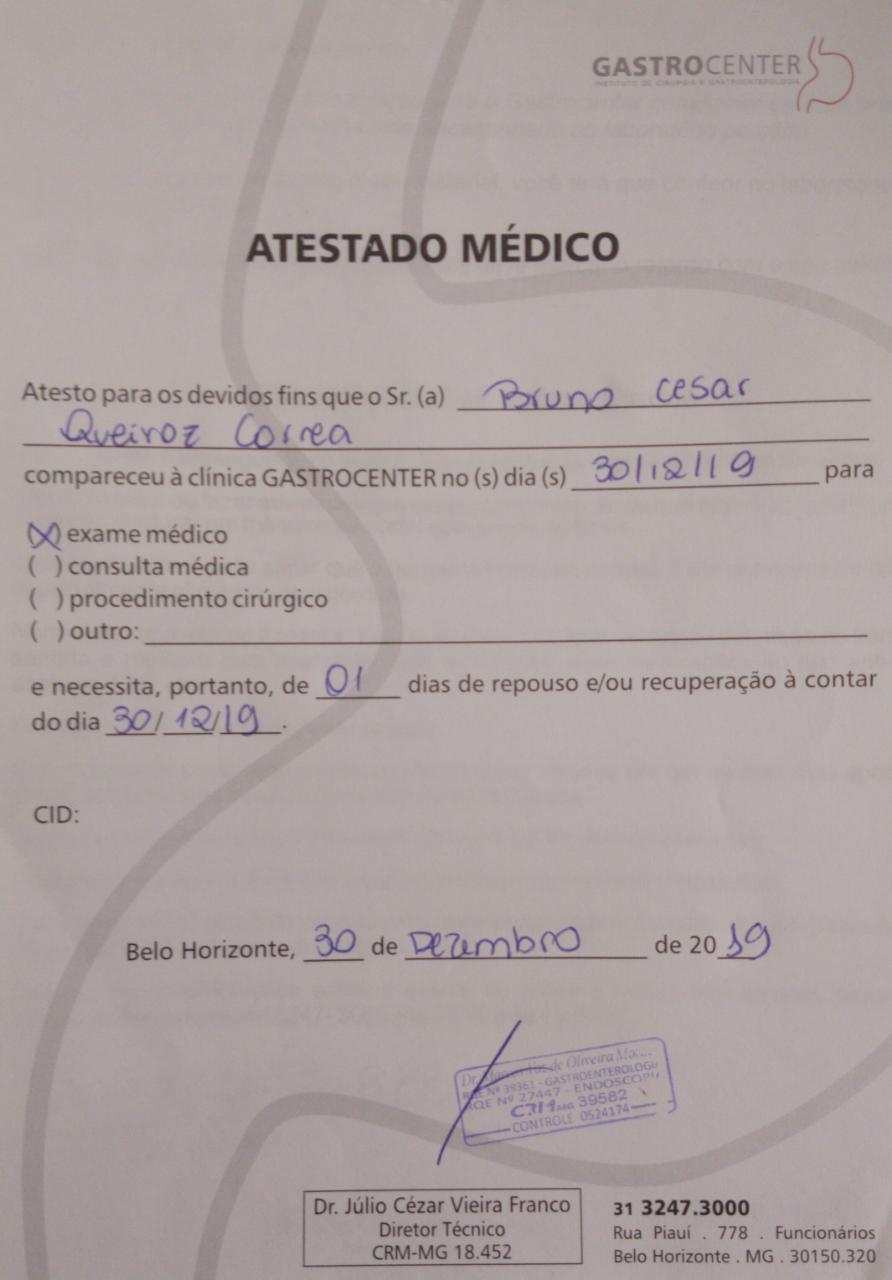 GASTROCENTER
INSTITUTO DE CIRURGIA E GASTROENTEROLOGIA
ATESTADO MÉDICO
Atesto para os devidos fins que o Sr. (a) Bruno Cesar
Queiroz Correa
compareceu à clínica GASTROCENTER no (s) dia (s) 30/12/19 para
(X) exame médico
( ) consulta médica
( ) procedimento cirúrgico
( ) outro:
e necessita, portanto, de 01 dias de repouso e/ou recuperação à contar
do dia 30/12/19.
CID:
Belo Horizonte, 30 de Dezembro de 2019
Dr. de Oliveira
RQE Nº 39361 - GASTROENTEROLOGIA
RQE Nº 27447 - ENDOSCOPIA
CRM MG 39582
CONTROLE 0524174
Dr. Júlio Cézar Vieira Franco
Diretor Técnico
CRM-MG 18.452
31 3247.3000
Rua Piauí . 778 . Funcionários
Belo Horizonte . MG . 30150.320